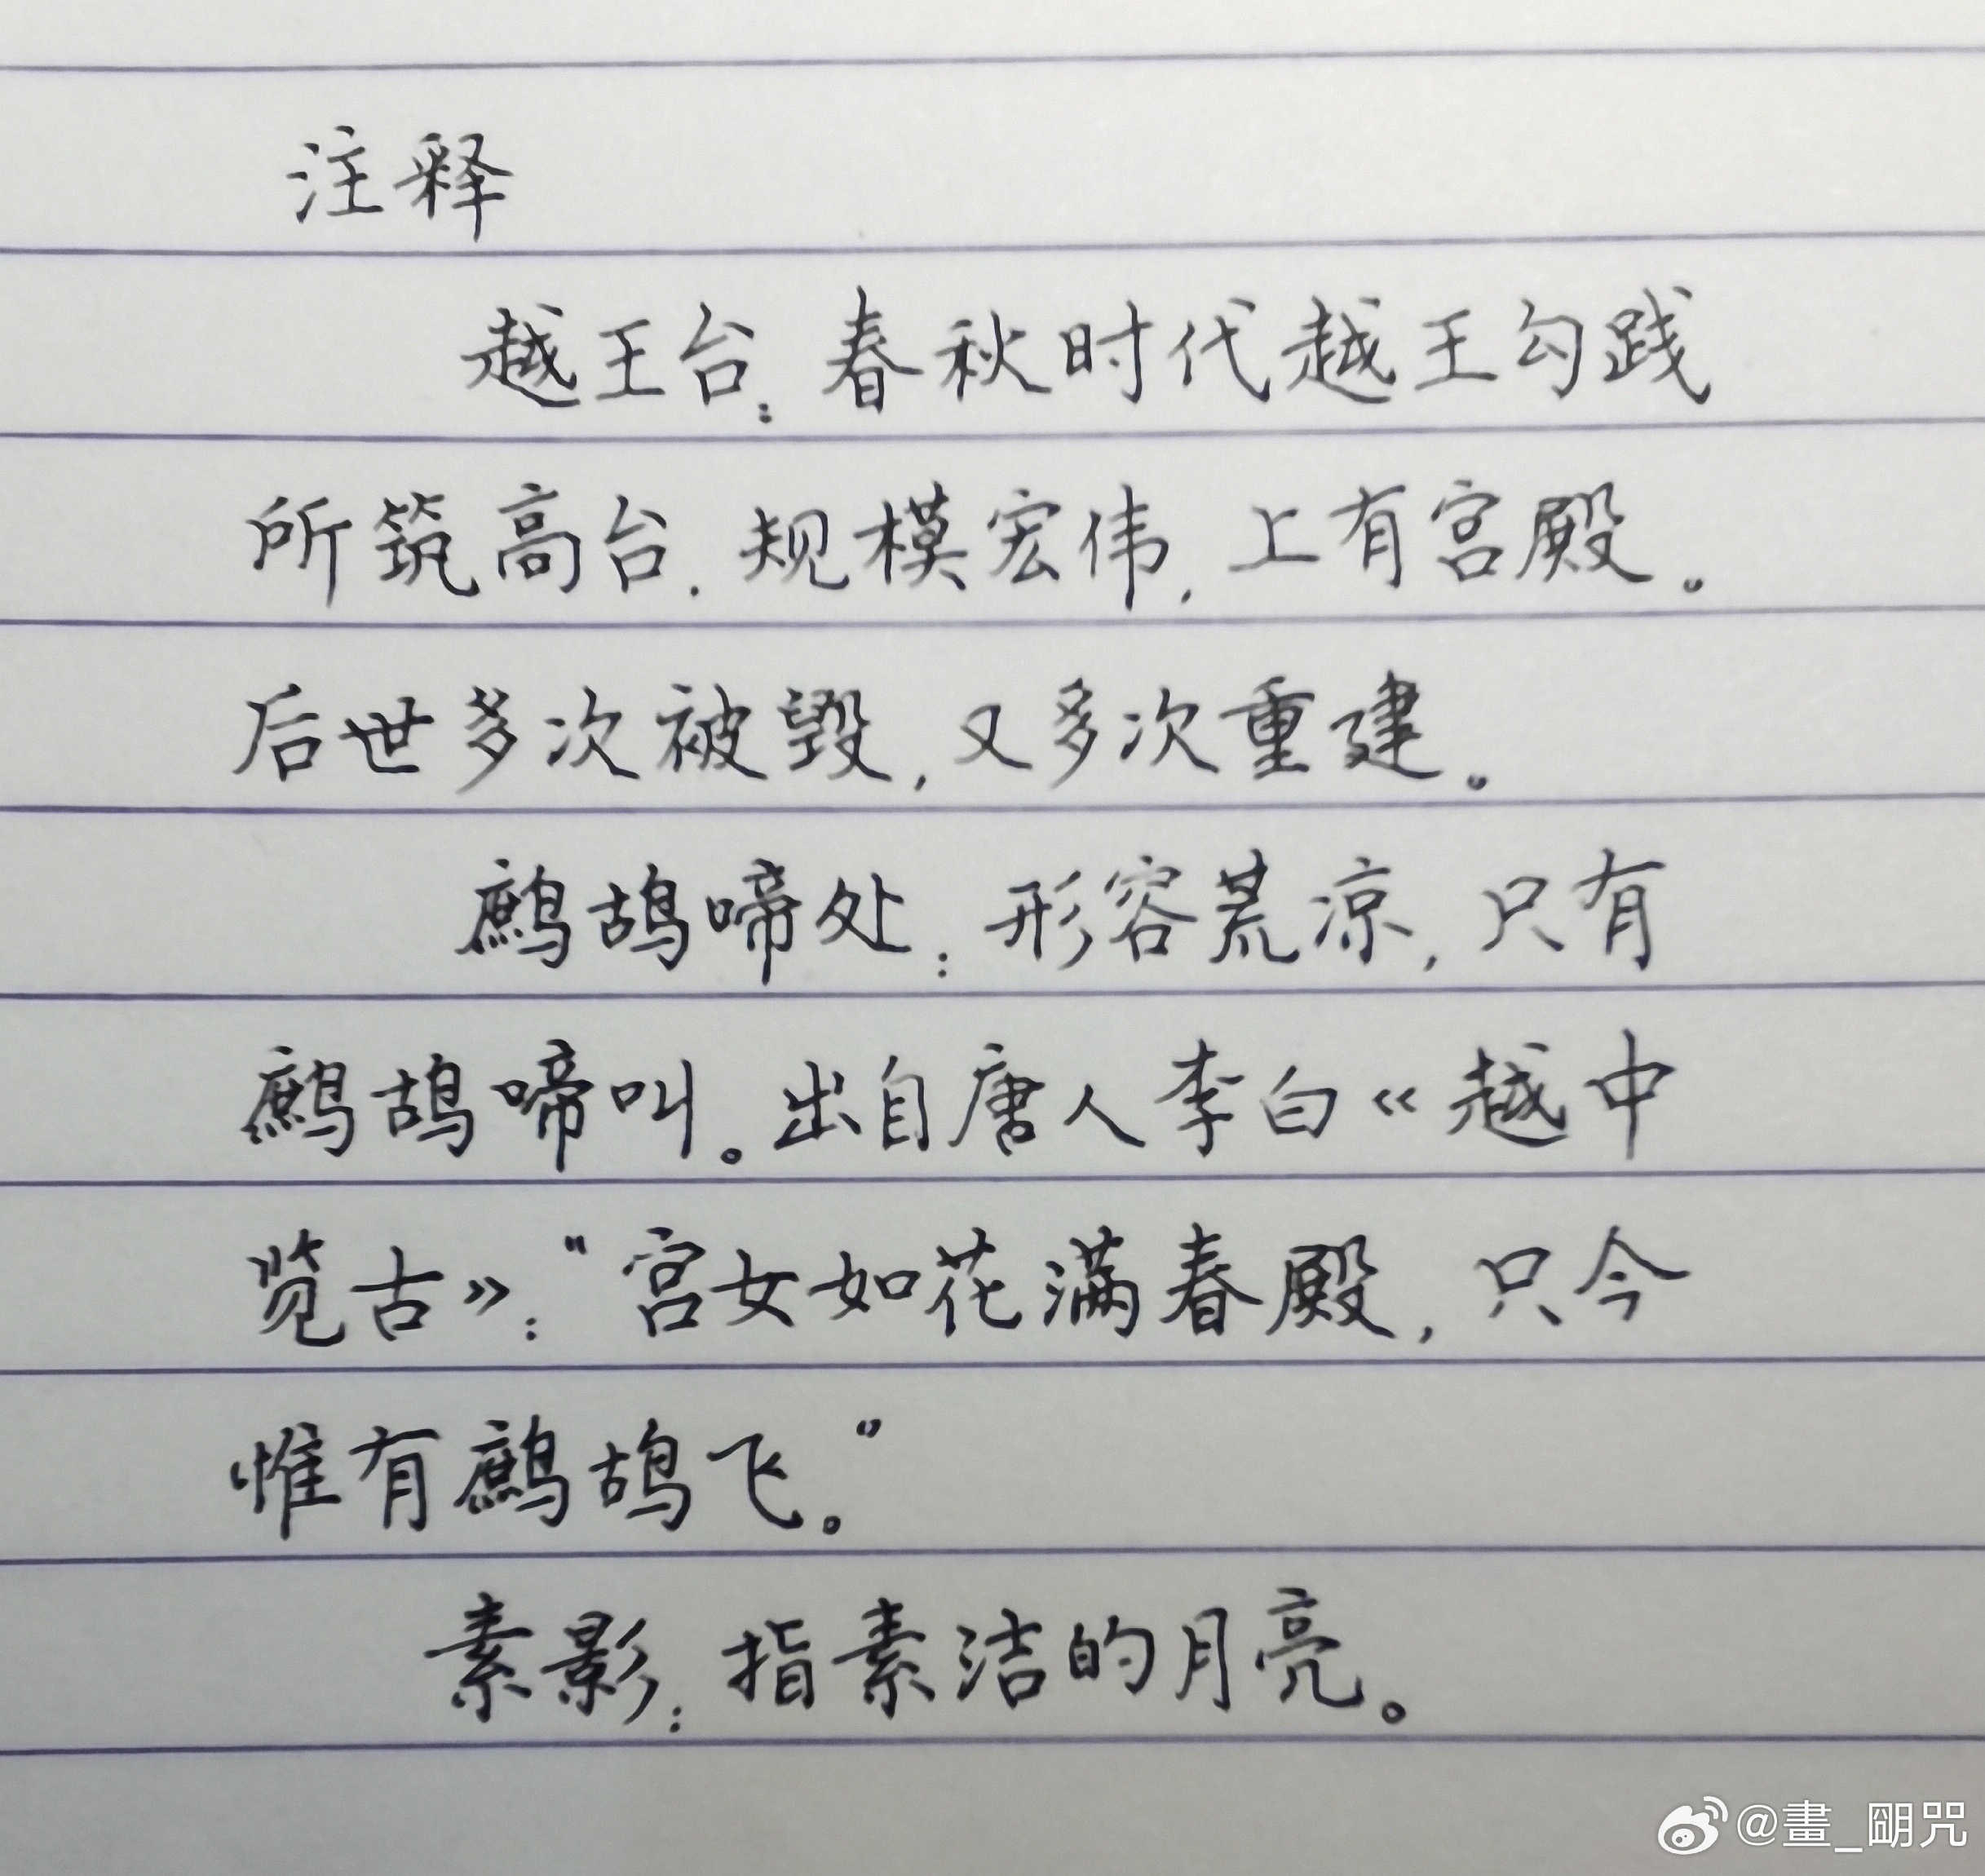 注释
越王台：春秋时代越王勾践
所筑高台，规模宏伟，上有宫殿。
后世多次被毁，又多次重建。
鹧鸪啼处：形容荒凉，只有
鹧鸪啼叫。出自唐人李白《越中
览古》：“宫女如花满春殿，只今
惟有鹧鸪飞。”
素影：指素洁的月亮。
@畫_朙咒